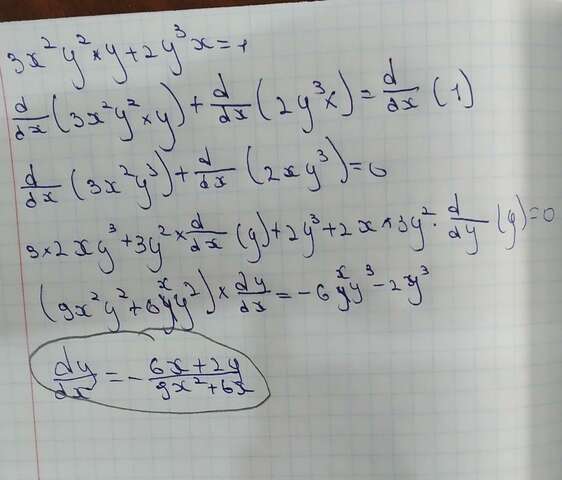 3x²y² × y + 2y³x = 1
d/dx (3x²y² × y) + d/dx (2y³x) = d/dx (1)
d/dx (3x²y³) + d/dx (2xy³) = 0
3 × 2xy³ + 3y² × d/dx (y) + 2y³ + 2x × 3y² · d/dy (y) = 0
(9x²y² + 6xy²) × dy/dx = -6xy³ - 2y³
dy/dx = - 6x + 2y / 9x² + 6x